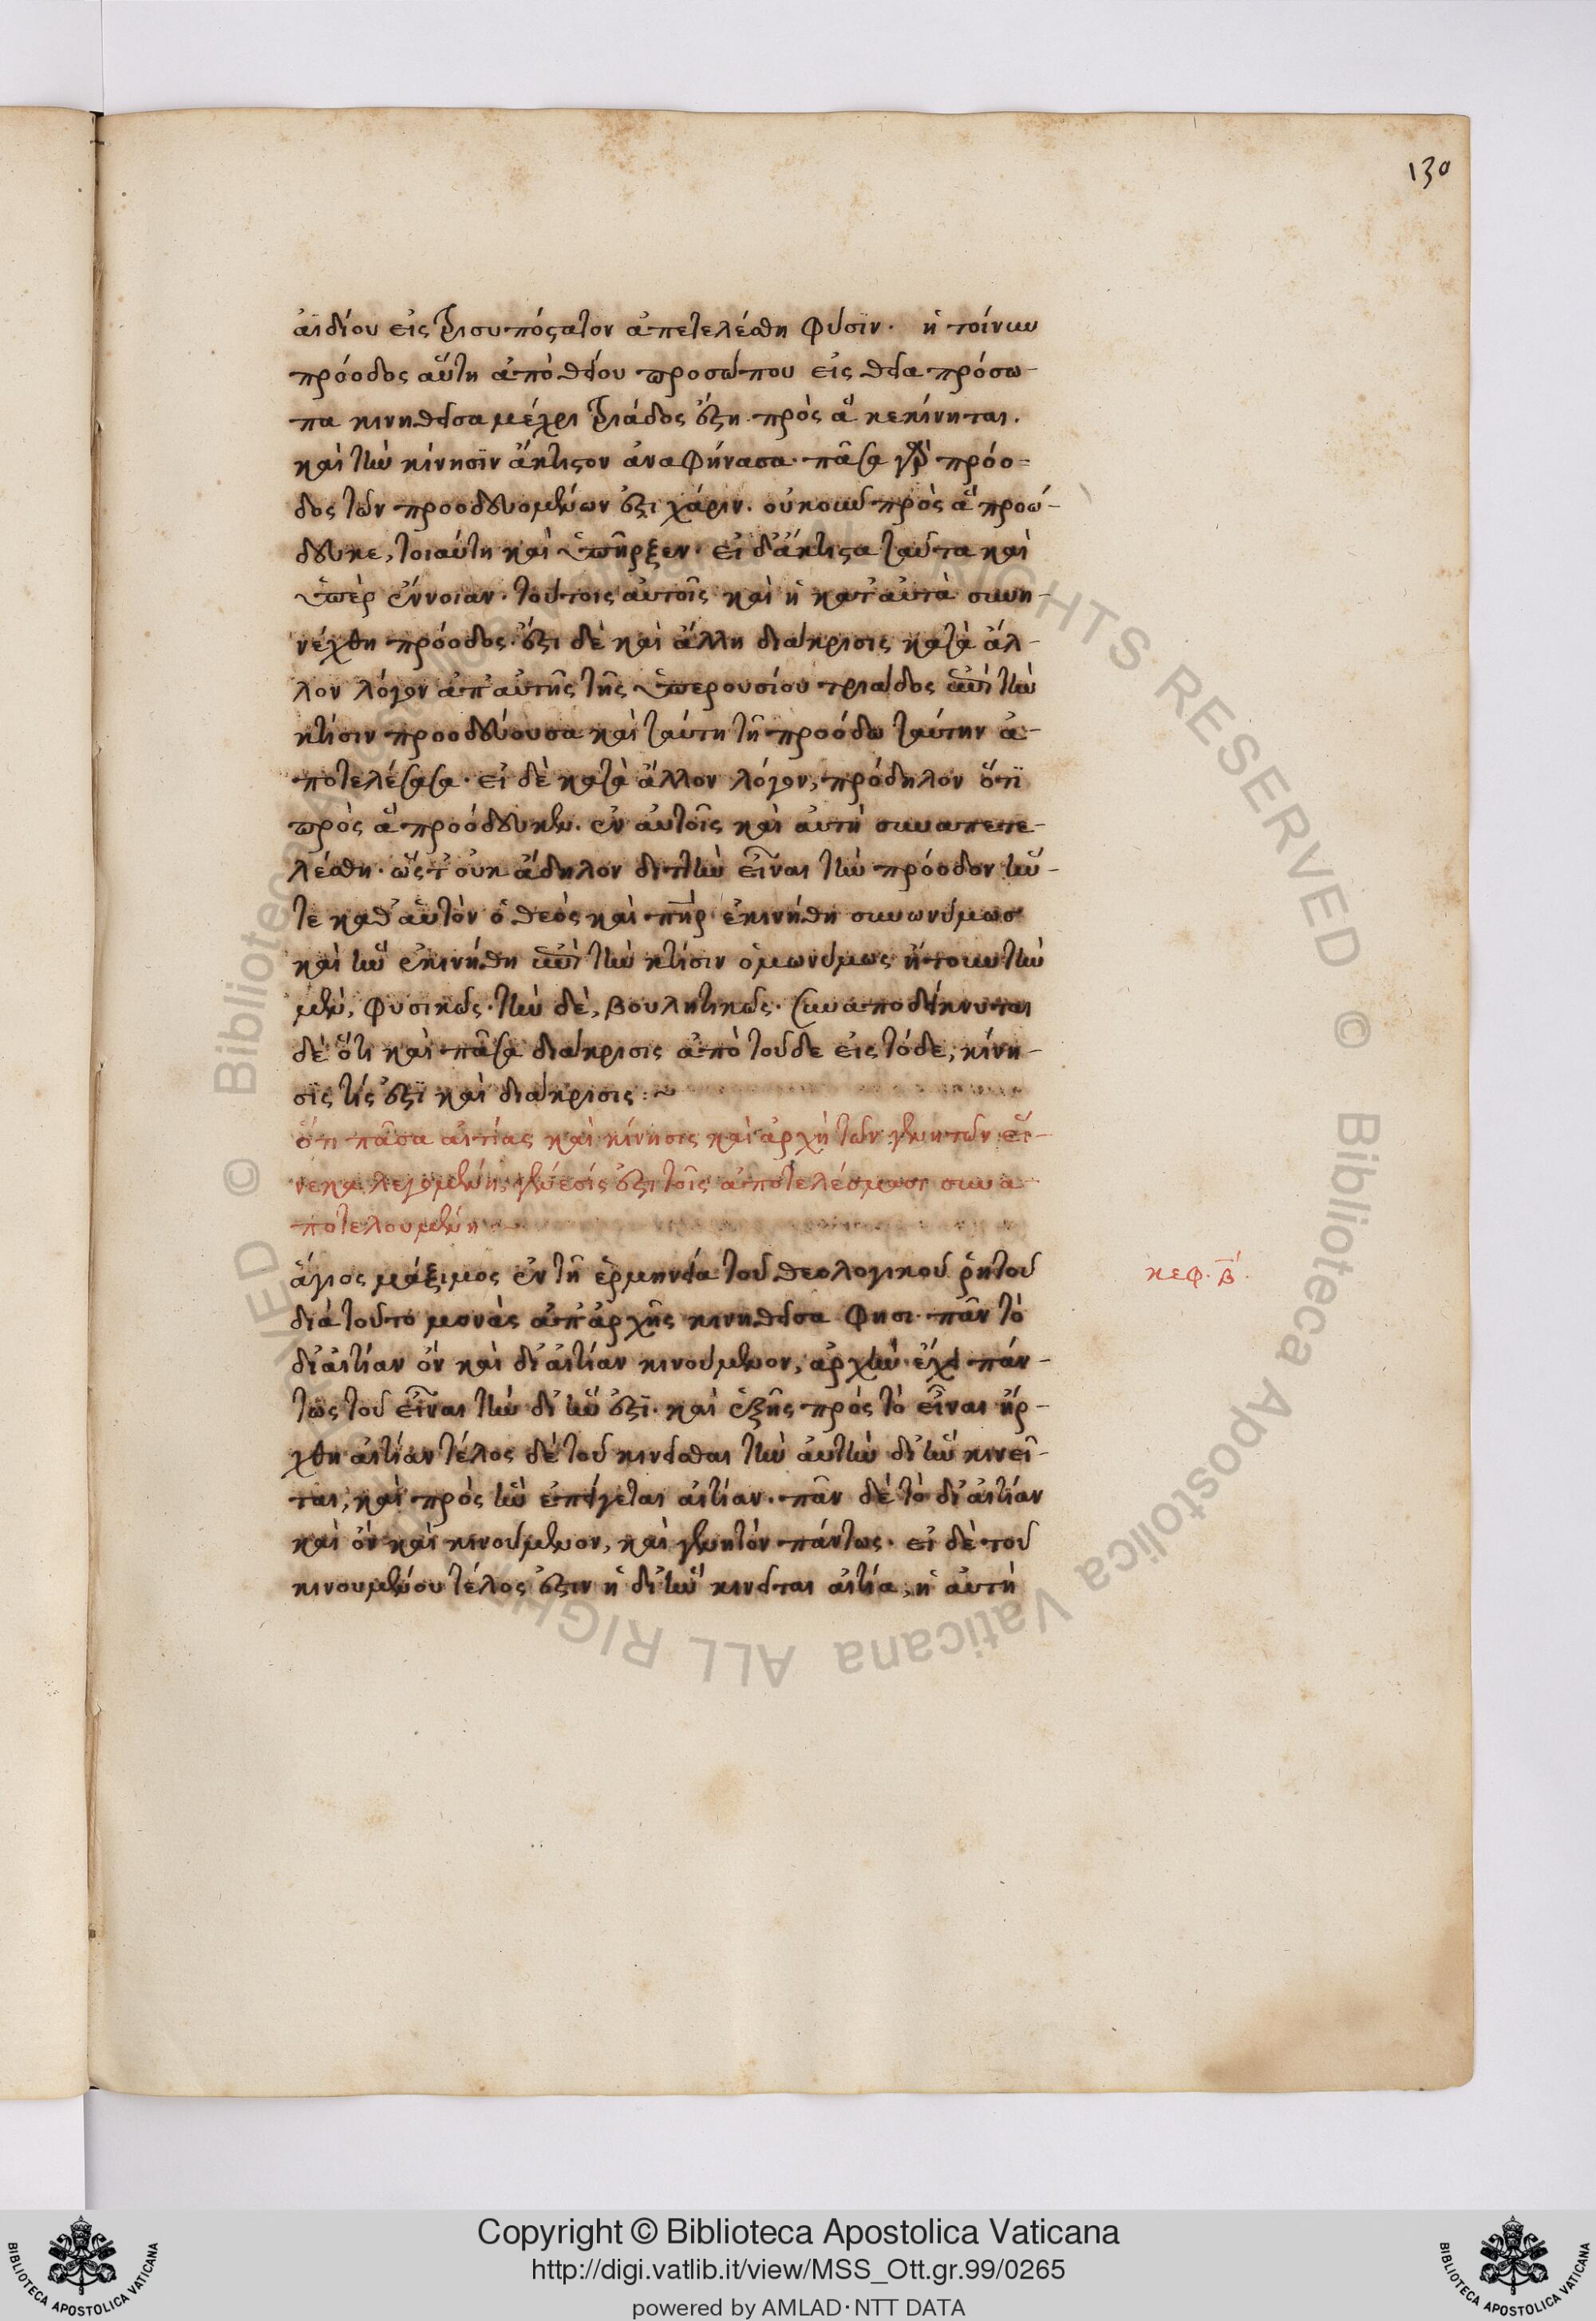 130
ἀϊδίου εἰς τρισυπόστατον ἀπετελέσθη φύσιν. ἡ τοίνυν
πρόοδος αὕτη ἀπὸ θείου προσώπου εἰς θεῖα πρόσω-
πα κινηθεῖσα μέχρι τριάδος ἔστη πρὸς ἃ κεκίνηται.
καὶ τὴν κίνησιν ἄκτιστον ἀναφήνασα. πᾶσα γὰρ πρόο-
δος τῶν προοδευομένων ἐστὶ χάριν. οὐκοῦν πρὸς ἃ προώ-
δευκε, τοιαύτη καὶ ὑπῆρξεν. εἰ δ' ἄκτιστα ταῦτα καὶ
ὑπὲρ ἔννοιαν. τούτοις αὐτοῖς καὶ ἡ κατ' αὐτὰ συνη-
νέχθη πρόοδος. ἔστι δὲ καὶ ἄλλη διάκρισις κατὰ ἄλ-
λον λόγον ἀπ' αὐτῆς τῆς ὑπερουσίου τριάδος ἐπὶ τὴν
κτίσιν προοδεύουσα καὶ ταύτη τῇ προόδω ταύτην ἀ-
ποτελέσασα. εἰ δὲ κατὰ ἄλλον λόγον, πρόδηλον ὅτι
πρὸς ἃ προόδευκεν. ἐν αὐτοῖς καὶ αὐτὴ συναπετε-
λέσθη. ὥστ' οὐκ ἄδηλον διττὴν εἶναι τὴν πρόοδον ἥν-
τε καθ' αὑτὸν ὁ θεὸς καὶ πηρ ἐκινήθη συνωνύμως
καὶ ἣν ἐκινήθη ἐπὶ τὴν κτίσιν ὁμωνύμως ἤτουν τὴν
μὲν, φυσικῶς. τὴν δὲ, βουλητικῶς. συναποδείκνυται
δὲ ὅτι καὶ πᾶσα διάκρισις ἀπὸ τοῦδε εἰς τόδε, κίνη-
σίς τίς ἐστὶ καὶ διάκρισις :~
ὅτι πᾶσα αἰτίας καὶ κίνησις καὶ ἀρχὴ τῶν γενητῶν εἵ-
νεκα λεγομένη, γένεσίς ἐστι τοῖς ἀποτελέσμασι συνα-
ποτελουμένη
ἅγιος μάξιμος ἐν τῇ ἑρμηνεία τοῦ θεολογικοῦ ῥητοῦ
κεφ. β'.
διὰ τοῦτο μονὰς ἀπ' ἀρχῆς κινηθεῖσα φησι. πᾶν τὸ
δι' αἰτίαν ὂν καὶ δι' αἰτίαν κινούμενον, ἀρχὴν ἔχει πάν-
τως τοῦ εἶναι τὴν δι' ἣν ἐστὶ. καὶ ἐξ ῆς πρὸς τὸ εἶναι ἤρ-
χθη αἰτίαν τέλος δὲ τοῦ κινεῖσθαι τὴν αὐτὴν δι' ἣν κινεῖ-
ται, καὶ πρὸς ἣν ἐπείγεται αἰτίαν. πᾶν δὲ τὸ δι' αἰτίαν
καὶ ὂν καὶ κινούμενον, καὶ γενητὸν πάντως. εἰ δὲ τοῦ
κινουμένου τέλος ἐστιν ἡ δι' ἣν κινεῖται αἰτία, ἡ αὐτὴ
Copyright © Biblioteca Apostolica Vaticana
http://digi.vatlib.it/view/MSS_Ott.gr.99/0265
powered by AMLAD·NTT DATA